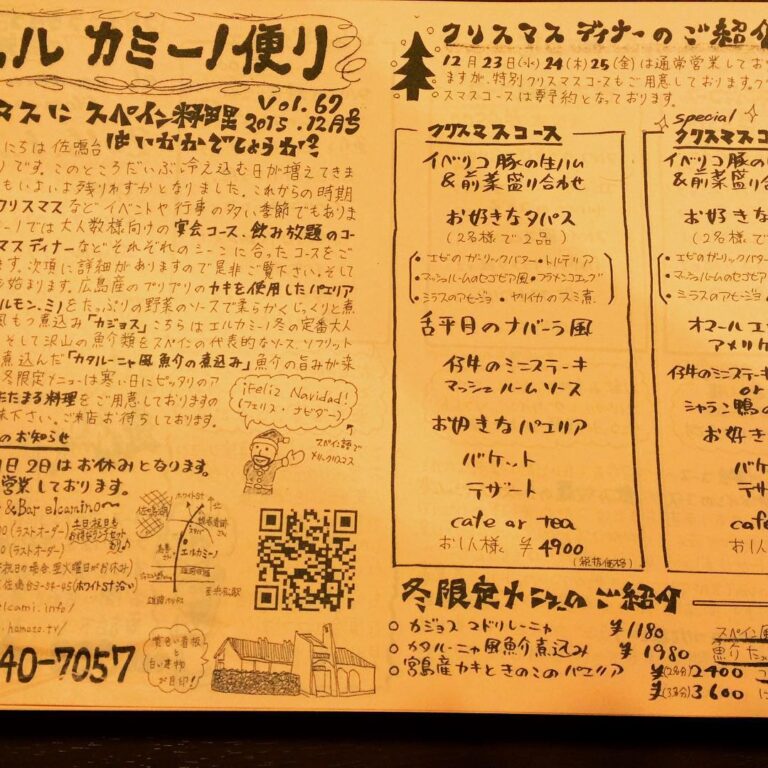 ル カミーノ便り
マスに スペイン料理 Vol.67
2015.12月号
はいかがでしょうか?
にちは 佐鳴台
です。このところだいぶ冷え込む日が増えてきま
もいよいよ残りわずかとなりました。これからの時期
クリスマスなどイベントや行事の多い季節でもありま
ーノでは大人数様向けの宴会コース、飲み放題のコー
マスディナーなどそれぞれのシーンに合ったコースをご
ます。次項に詳細がありますので是非ご覧下さい。そして
も始まります。広島産のプリプリのカキを使用したパエリア
ルモン、ミノをたっぷりの野菜のソースで柔らかくじっくりと煮
風もつ煮込み「カジョス」こちらはエルカミーノ冬の定番大人
そして沢山の魚介類をスペインの代表的なソース、ソフリット
煮込んだ「カタルーニャ風魚介の煮込み」魚介の旨みが
冬限定メニューは寒い日にピッタリのア
たたまる料理をご用意しておりますの
味下さい。ご来店お待ちしております。
のお知らせ
1日 2日はお休みとなります。
営業しております。
&Bar elcamino～
00(ラストオーダー)
(ラストオーダー)
祝日の場合、翌火曜日がお休み)
佐鳴台3-54-45(ホワイトST沿い)
elcami.info/
.hamazo.tv/
40-7057
¡Feliz Navidad!
(フェリス・ナビダー)
スペイン語で
メリークリスマス
ホワイトST
佐鳴湖
エルカミーノ
至浜松駅
黄色い看板
と
白い建物
が目印!
クリスマス ディナーのご紹介
12月23日(水)24(木)25(金)は通常営業してお
ますが、特別クリスマスコースもご用意しております。ク
スマスコースは要予約となっております。
クリスマスコース
イベリコ豚の生ハム
&前菜盛り合わせ
お好きなタパス
(2名様で2品)
・エビのガーリックバター・トルティリア
・マッシュルームのセゴビア風・フラメンコエッグ
・ミラスのアヒージョ・ヤリイカのスミ煮
舌平目のナバーラ風
仔牛のミニステーキ
マッシュルームソース
お好きなパエリア
バケット
デザート
cafe or tea
お1人様 ¥4900
(税抜価格)
special
クリスマスコ
イベリコ豚の
&前菜盛り
お好きな
(2名様で
・エビのガーリックバタ
・マッシュルームのセゴビア
・ミラスのアヒージョ
オマールエ
アメリケ
仔牛のミニステーキ
or
シャラン鴨の
お好き
バケ
デザ
cafe
お1人
冬限定メニューのご紹介
○カジョス マドリレーニャ ¥1180
○カタルーニャ風魚介煮込み ¥1980
○宮島産カキときのこのパエリア ¥(2名分)2400
¥(3名分)3600
スペイン風
魚介たっ